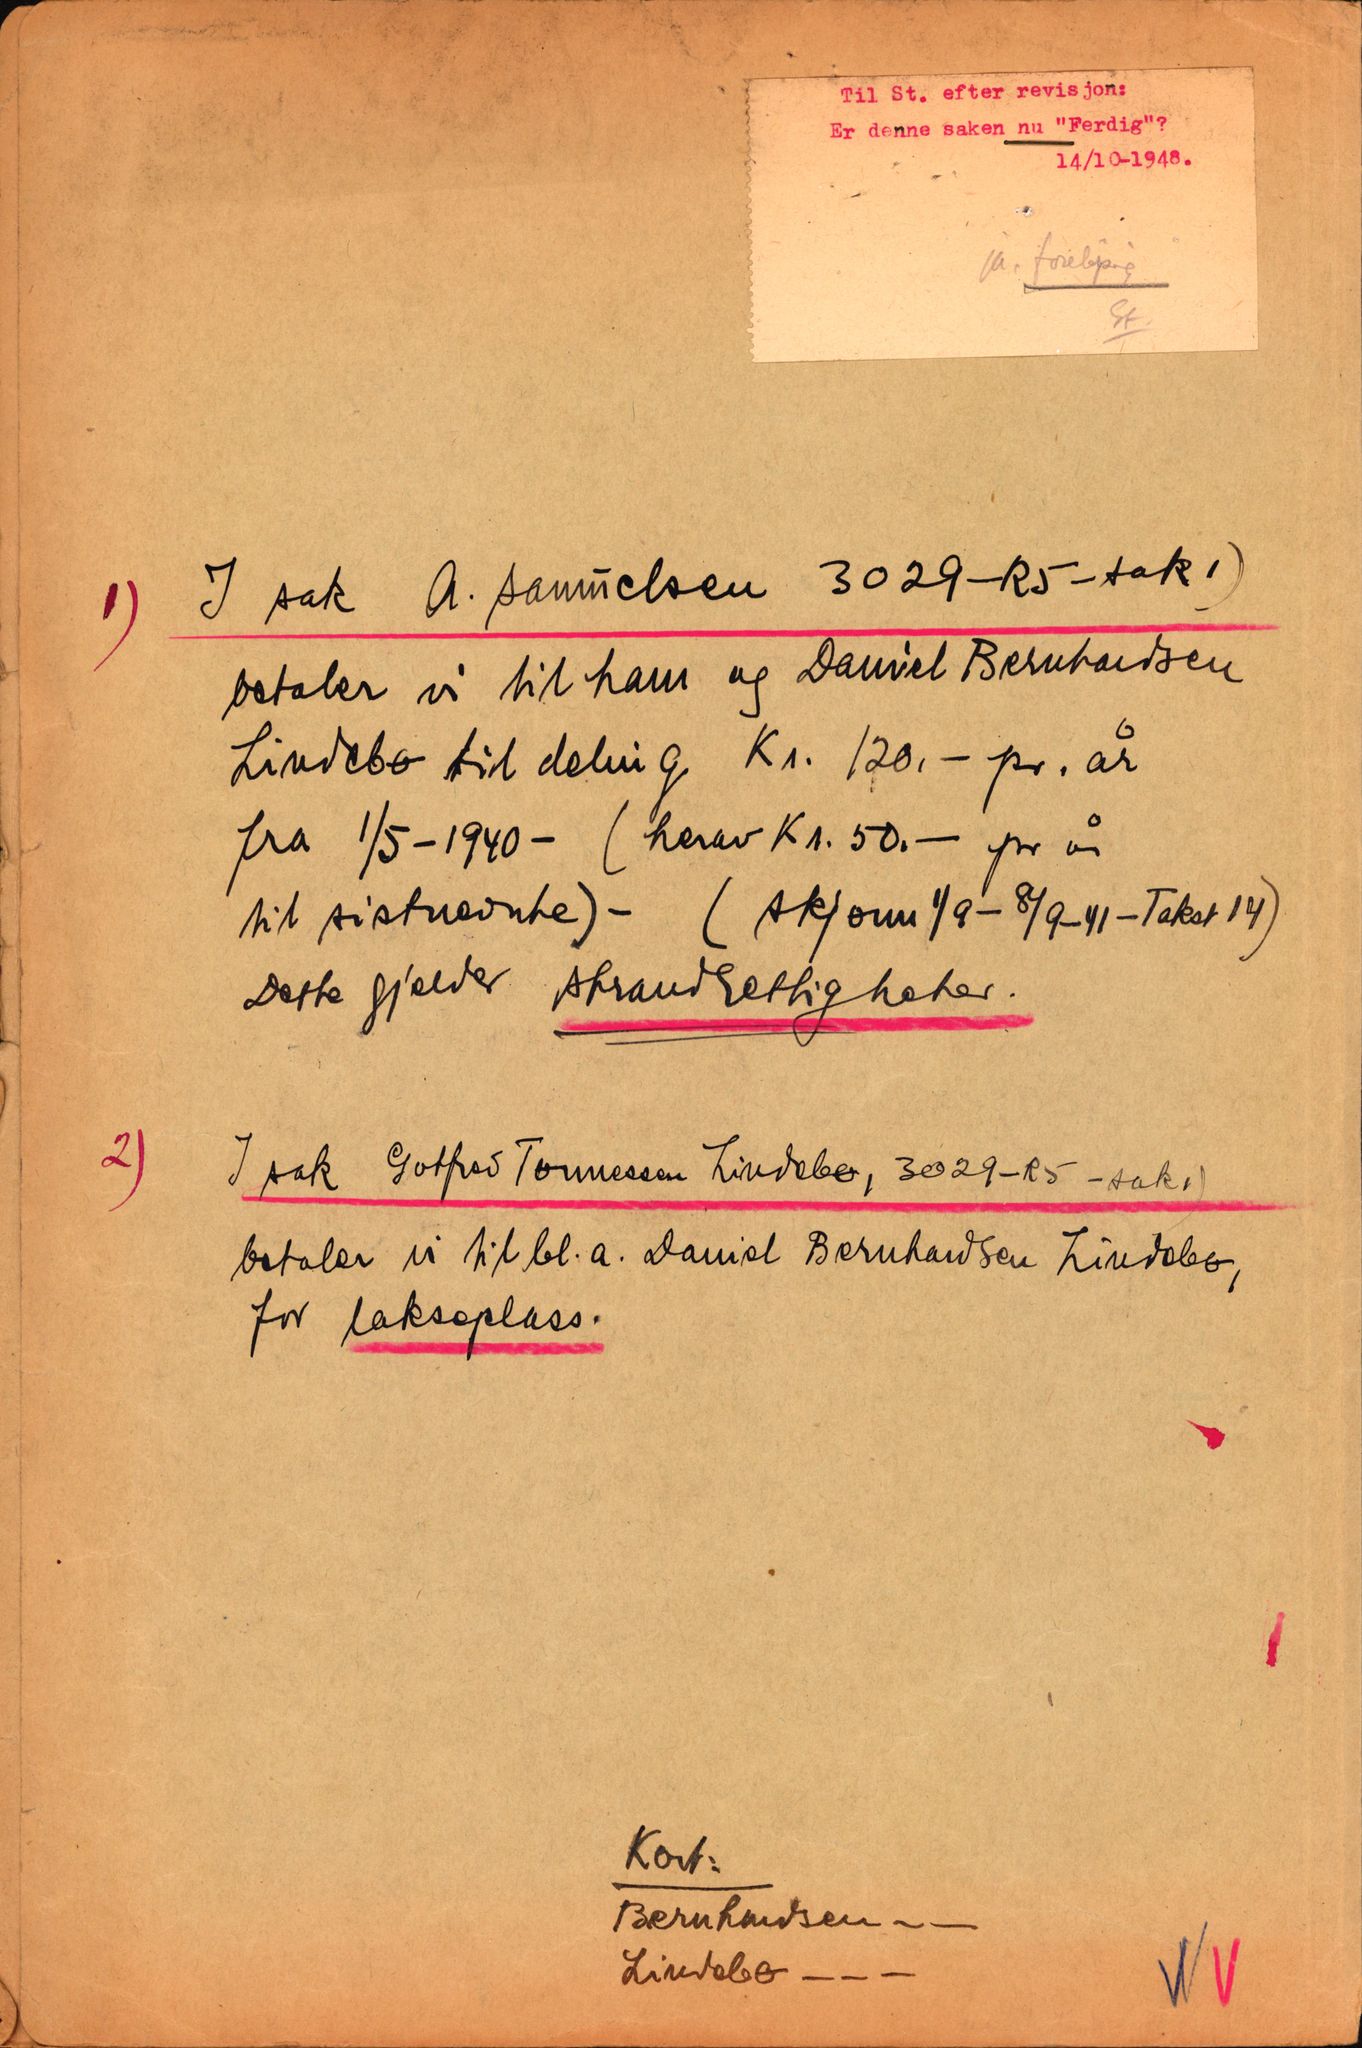 Til St. efter revisjon:
Er denne saken nu "Ferdig"?
14/10-1948.
ja. foreløpig
St.
1) I sak A. Samuelsen 3029-R5-sak 1)
betaler vi til ham og Daniel Bernhardsen
Lindebø til deling Kr. 120.- pr. år
fra 1/5-1940- (herav Kr. 50.- pr år
til sistnevnte)- (skjønn 1/9-8/9-41-Takst 14)
Dette gjelder strandrettigheter.
2) I sak Gotfred Tønnessen Lindebø, 3029-R5-sak 1)
betaler vi til bl.a. Daniel Bernhardsen Lindebø,
for lakseplass.
Kort:
Bernhardsen - -
Lindebø - - -
V V